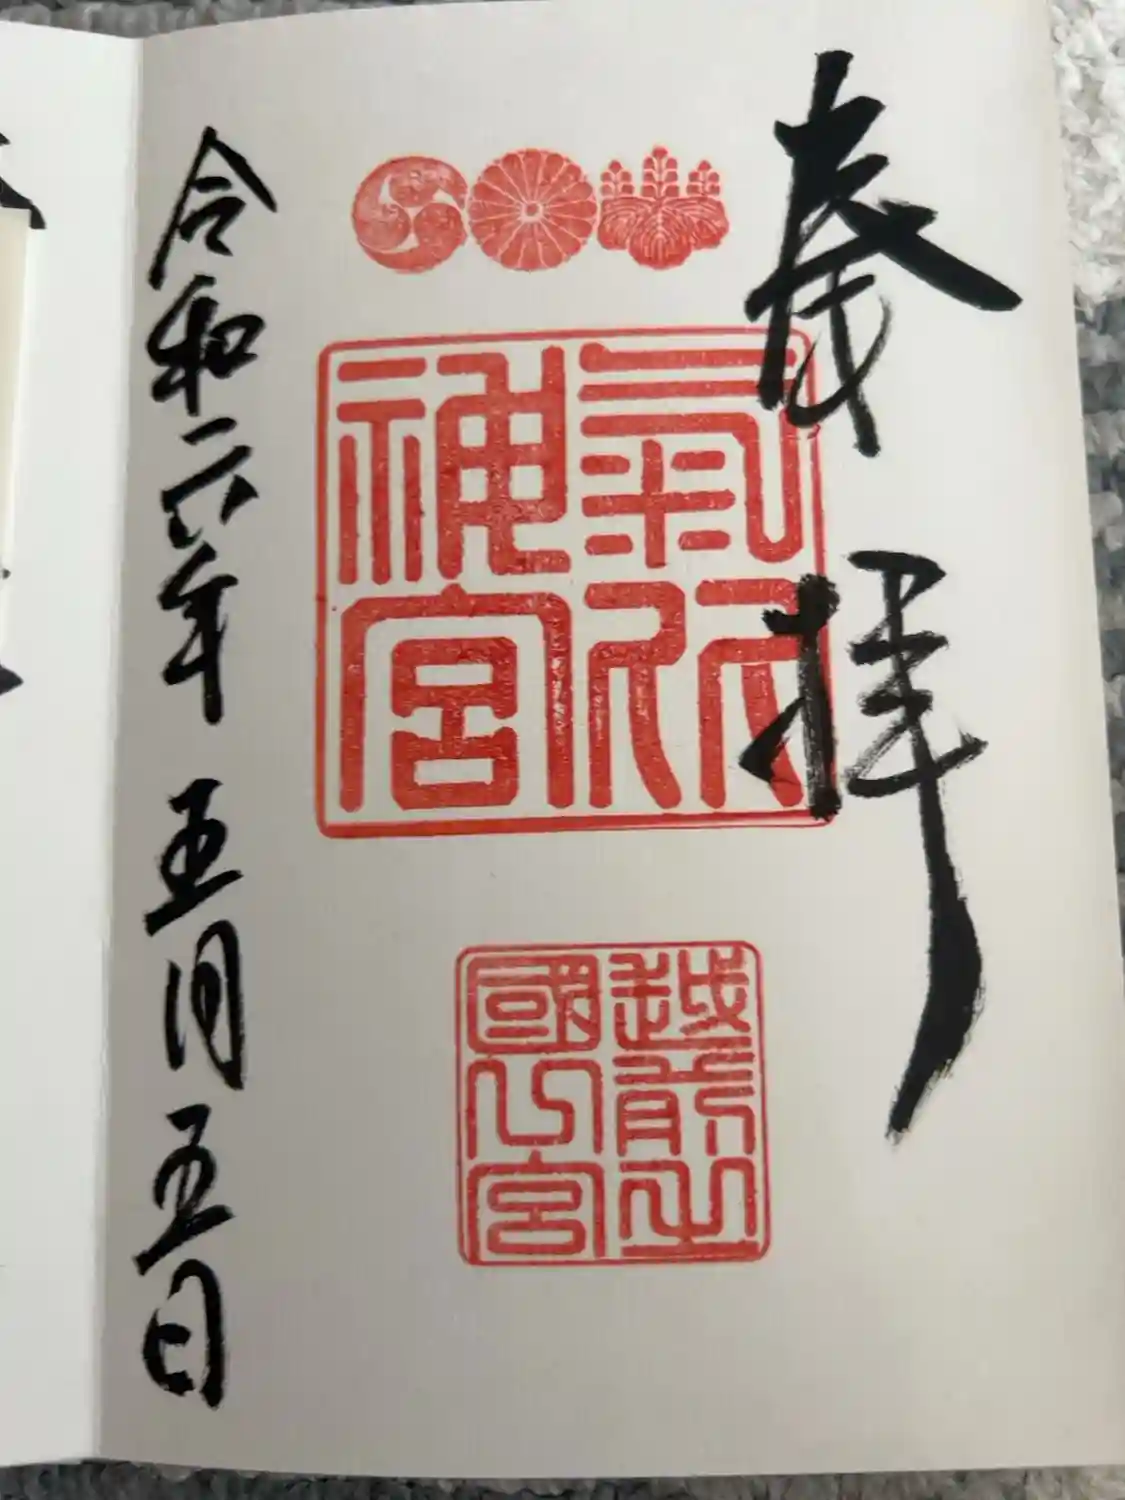 奉拝
氣比
神宮
越前之
國宮
令和六年五月五日